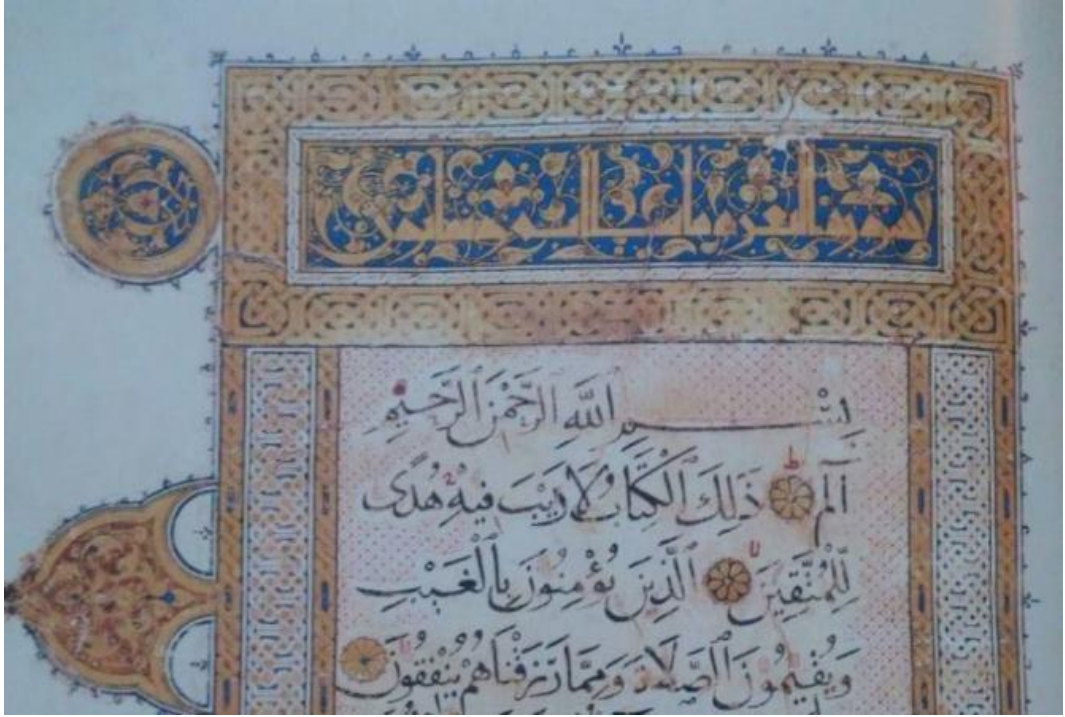 سورة البقرة
بِسْمِ اللَّهِ الرَّحْمَٰنِ الرَّحِيمِ
الم ذَٰلِكَ الْكِتَابُ لَا رَيْبَ فِيهِ هُدًى
لِّلْمُتَّقِينَ الَّذِينَ يُؤْمِنُونَ بِالْغَيْبِ
وَيُقِيمُونَ الصَّلَاةَ وَمِمَّا رَزَقْنَاهُمْ يُنْفِقُونَ